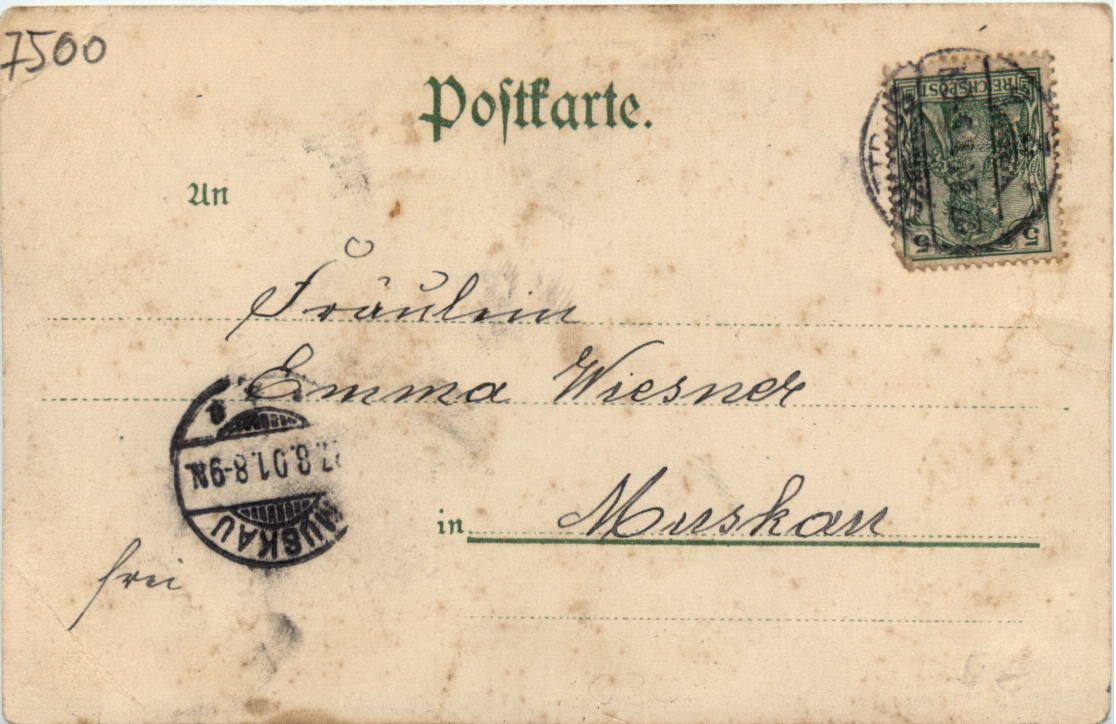 7500
Postkarte.
REICHSPOST
5 5
An
Fräulein
Emma Wiesner
in Muskau
MUSKAU
7.8.01.8-9N.
frei